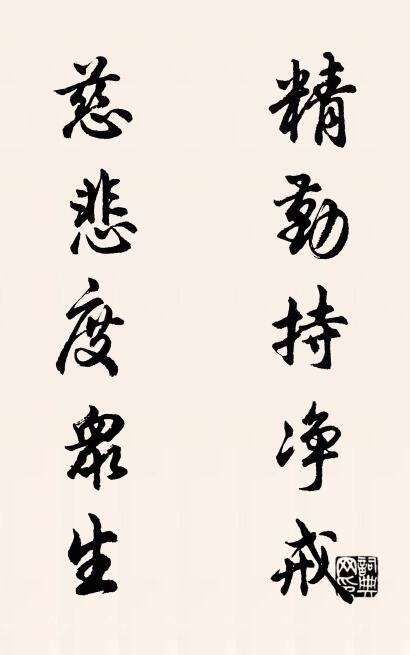 精勤持净戒
慈悲度眾生
詞典网